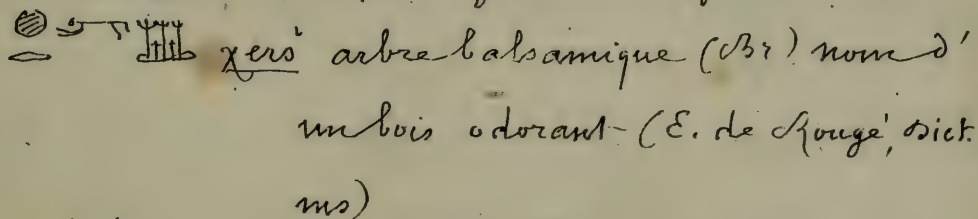 χersˋ arbre balsamique (Br) nom d'
un bois odorant (E. de Rougé, Dict.
ms)